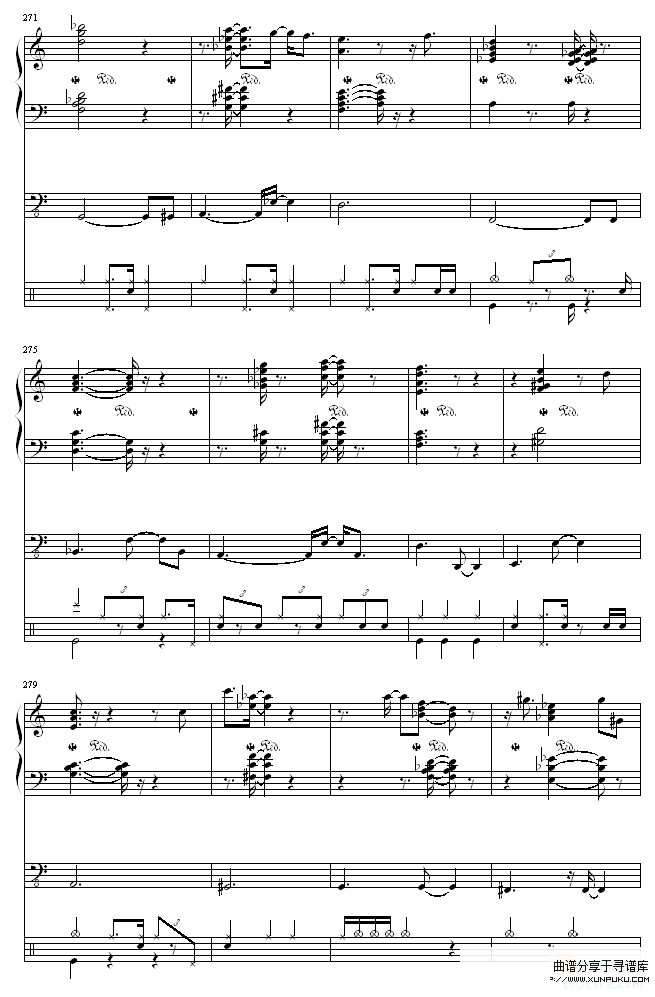 271
Ped. Ped. Ped. Ped.
3
275
Ped. Ped. Ped. Ped.
3 3 3
279
Ped. Ped. Ped. Ped.
3
曲谱分享于寻谱库
P://WWW.XUNPUKU.COM